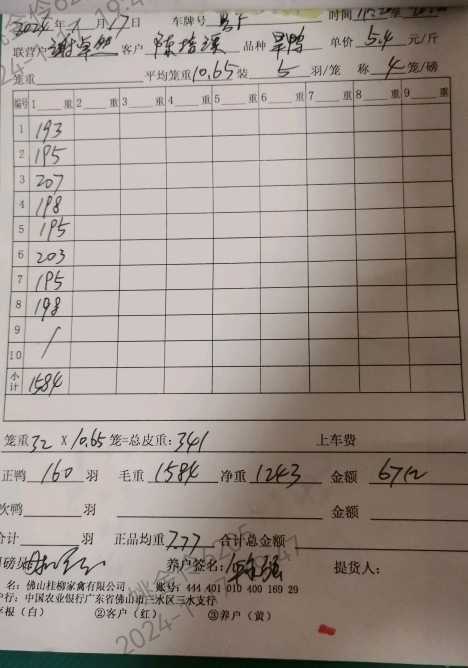 2024年1月17日 车牌号 时间
联营户 谢卓然 客户 品种 旱鸭 单价 5.4 元/斤
笼重 平均笼重10.65 装 5 羽/笼 称 4 笼/磅
编号 1 重 2 重 3 重 4 重 5 重 6 重 7 重 8 重 9 重
1 193
2 195
3 207
4 198
5 195
6 203
7 195
8 198
9 /
10
小计 1584
笼重32 X 10.65 笼=总皮重:341 上车费
正鸭 160 羽 毛重 1584 净重 1243 金额 6712
次鸭 羽 金额
合计 羽 正品均重 7.77 合计总金额
司磅员 养户签名: 提货人:
名: 佛山桂柳家禽有限公司 账号: 444 401 010 400 169 29
户行: 中国农业银行广东省佛山市三水区三水支行
存根(白) ②客户(红) ③养户(黄)